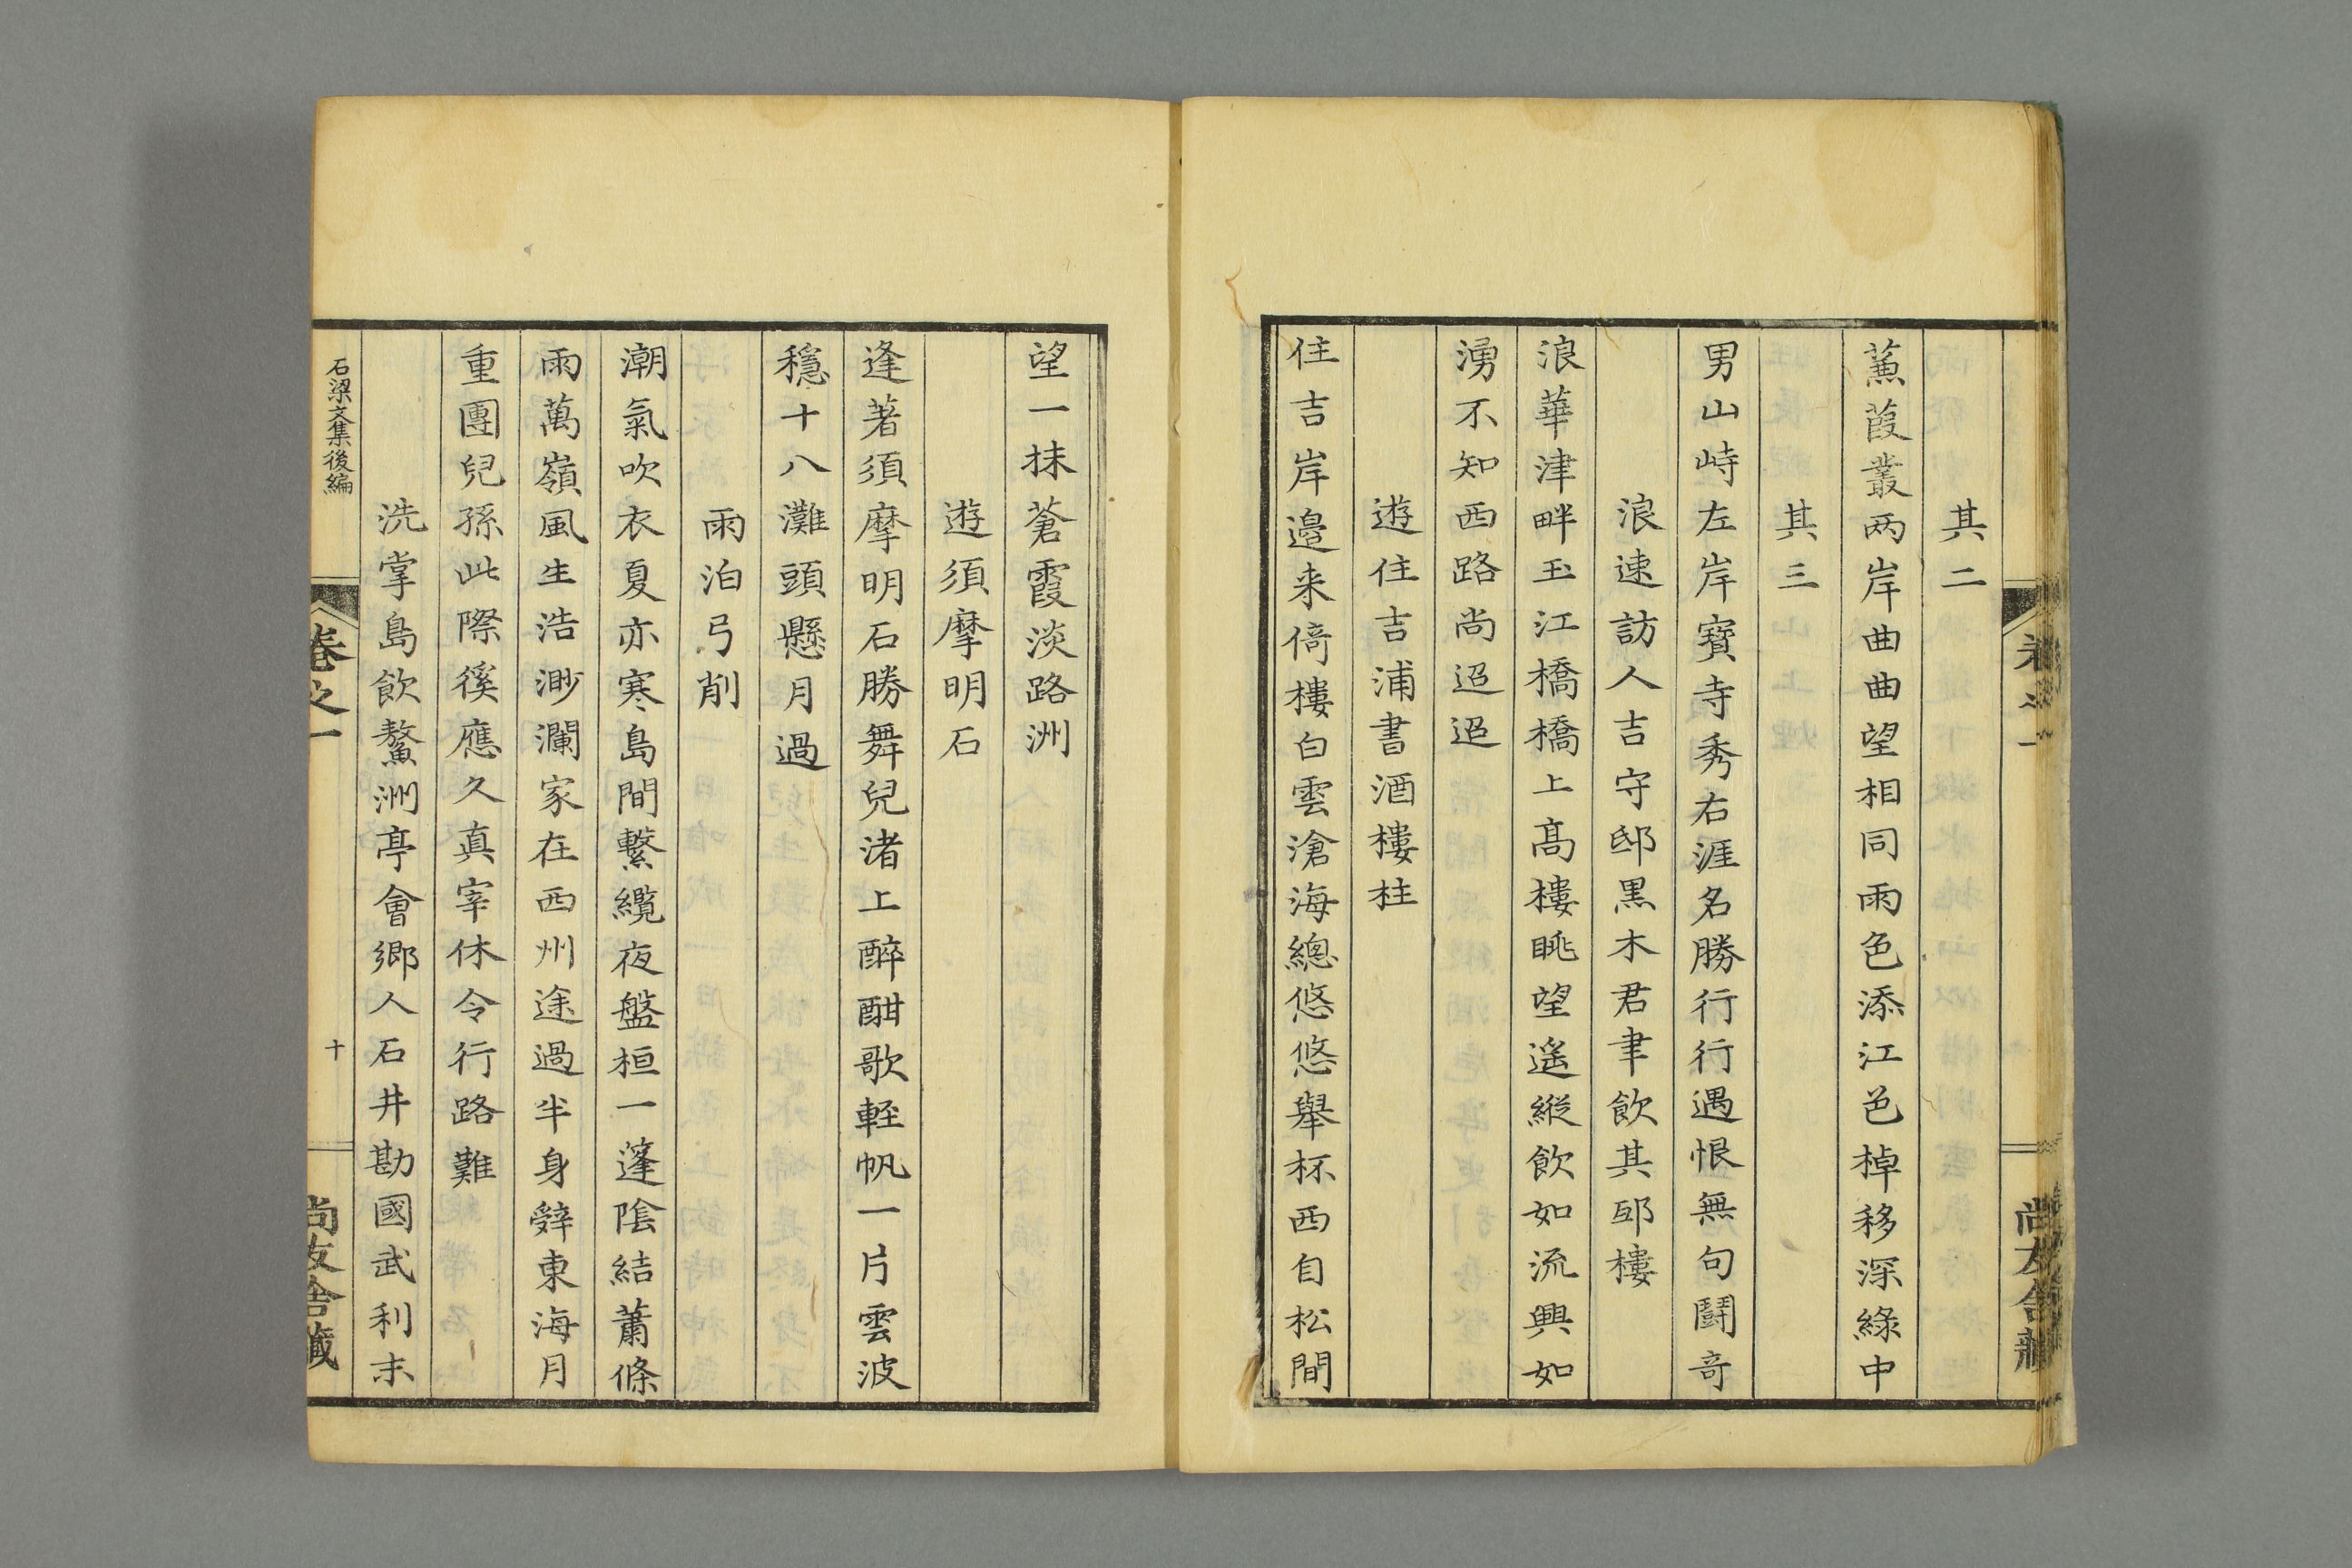 其二
蒹葭叢两岸曲曲望相同雨色添江色棹移深綠中
其三
男山峙左岸寶寺秀右涯名勝行行遇恨無句鬪奇
浪速訪人吉守邸黒木君聿飲其邸樓
浪華津畔玉江橋橋上髙樓眺望遥縱飲如流興如
湧不知西路尚迢迢
遊住吉浦書酒樓柱
住吉岸邉来倚樓白雲滄海總悠悠舉杯西自松間
望一抹蒼霞淡路洲
遊須摩明石
逢著須摩明石勝舞兒渚上醉酣歌軽帆一片雲波
穩十八灘頭懸月過
雨泊弓削
潮氣吹衣夏亦寒島間繫纜夜盤桓一蓬陰結蕭條
雨萬嶺風生浩渺瀾家在西州途過半身辤東海月
重團兒孫此際徯應久真宰休令行路難
洗掌島飲鰲洲亭會郷人石井勘國武利末
石梁文集後編
卷之一
十
尚友舎藏